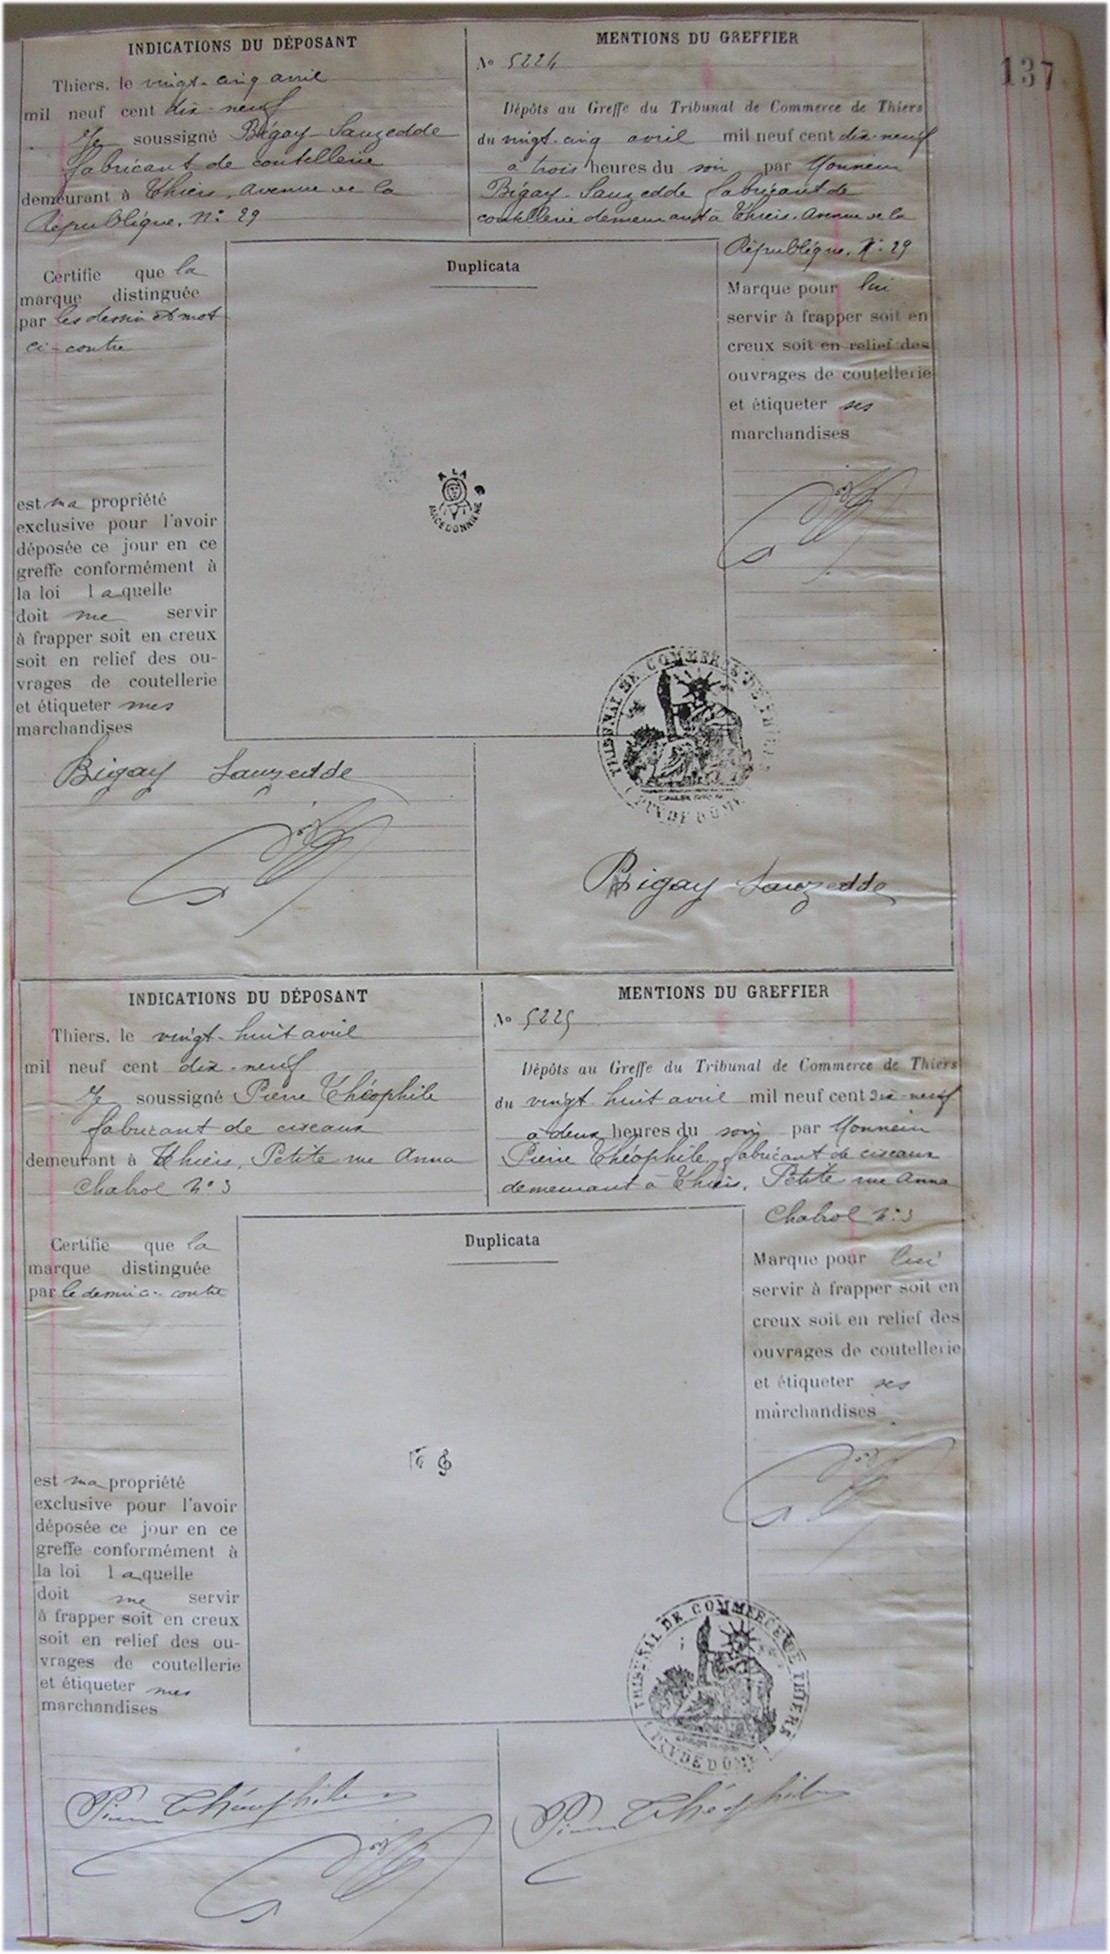 137
INDICATIONS DU DÉPOSANT
Thiers, le vingt-cinq avril
mil neuf cent dix-neuf
Je soussigné Bigay-Sauzedde
fabricant de coutellerie
demeurant à Thiers, avenue de la
République, N: 29
Certifie que la
marque distinguée
par les dessin et mot
ci-contre
est ma propriété
exclusive pour l'avoir
déposée ce jour en ce
greffe conformément à
la loi laquelle
doit me servir
à frapper soit en creux
soit en relief des ou-
vrages de coutellerie
et étiqueter mes
marchandises
Bigay Sauzedde
MENTIONS DU GREFFIER
No 5224
Dépôts au Greffe du Tribunal de Commerce de Thiers
du vingt-cinq avril mil neuf cent dix-neuf
à trois heures du soir par Monsieur
Bigay-Sauzedde fabricant de
coutellerie demeurant à Thiers, avenue de la
République, N: 29
Duplicata
A LA
MACEDONNIENE
Marque pour lui
servir à frapper soit en
creux soit en relief des
ouvrages de coutellerie
et étiqueter ses
marchandises
TRIBUNAL DE COMMERCE DE THIERS
(PUY DE DÔME)
Bigay Sauzedde
INDICATIONS DU DÉPOSANT
Thiers, le vingt-huit avril
mil neuf cent dix-neuf
Je soussigné Pierre Théophile
fabricant de ciseaux
demeurant à Thiers, Petite rue Anna
Chabrol N° 3
Certifie que la
marque distinguée
par le dessin ci-contre
est ma propriété
exclusive pour l'avoir
déposée ce jour en ce
greffe conformément à
la loi laquelle
doit me servir
à frapper soit en creux
soit en relief des ou-
vrages de coutellerie
et étiqueter mes
marchandises
Pierre Théophile
MENTIONS DU GREFFIER
No 5225
Dépôts au Greffe du Tribunal de Commerce de Thiers
du vingt-huit avril mil neuf cent dix-neuf
à deux heures du soir par Monsieur
Pierre Théophile, fabricant de ciseaux
demeurant à Thiers, Petite rue Anna
Chabrol N: 3
Duplicata
Marque pour lui
servir à frapper soit en
creux soit en relief des
ouvrages de coutellerie
et étiqueter ses
marchandises
TRIBUNAL DE COMMERCE DE THIERS
(PUY DE DÔME)
Pierre Théophile